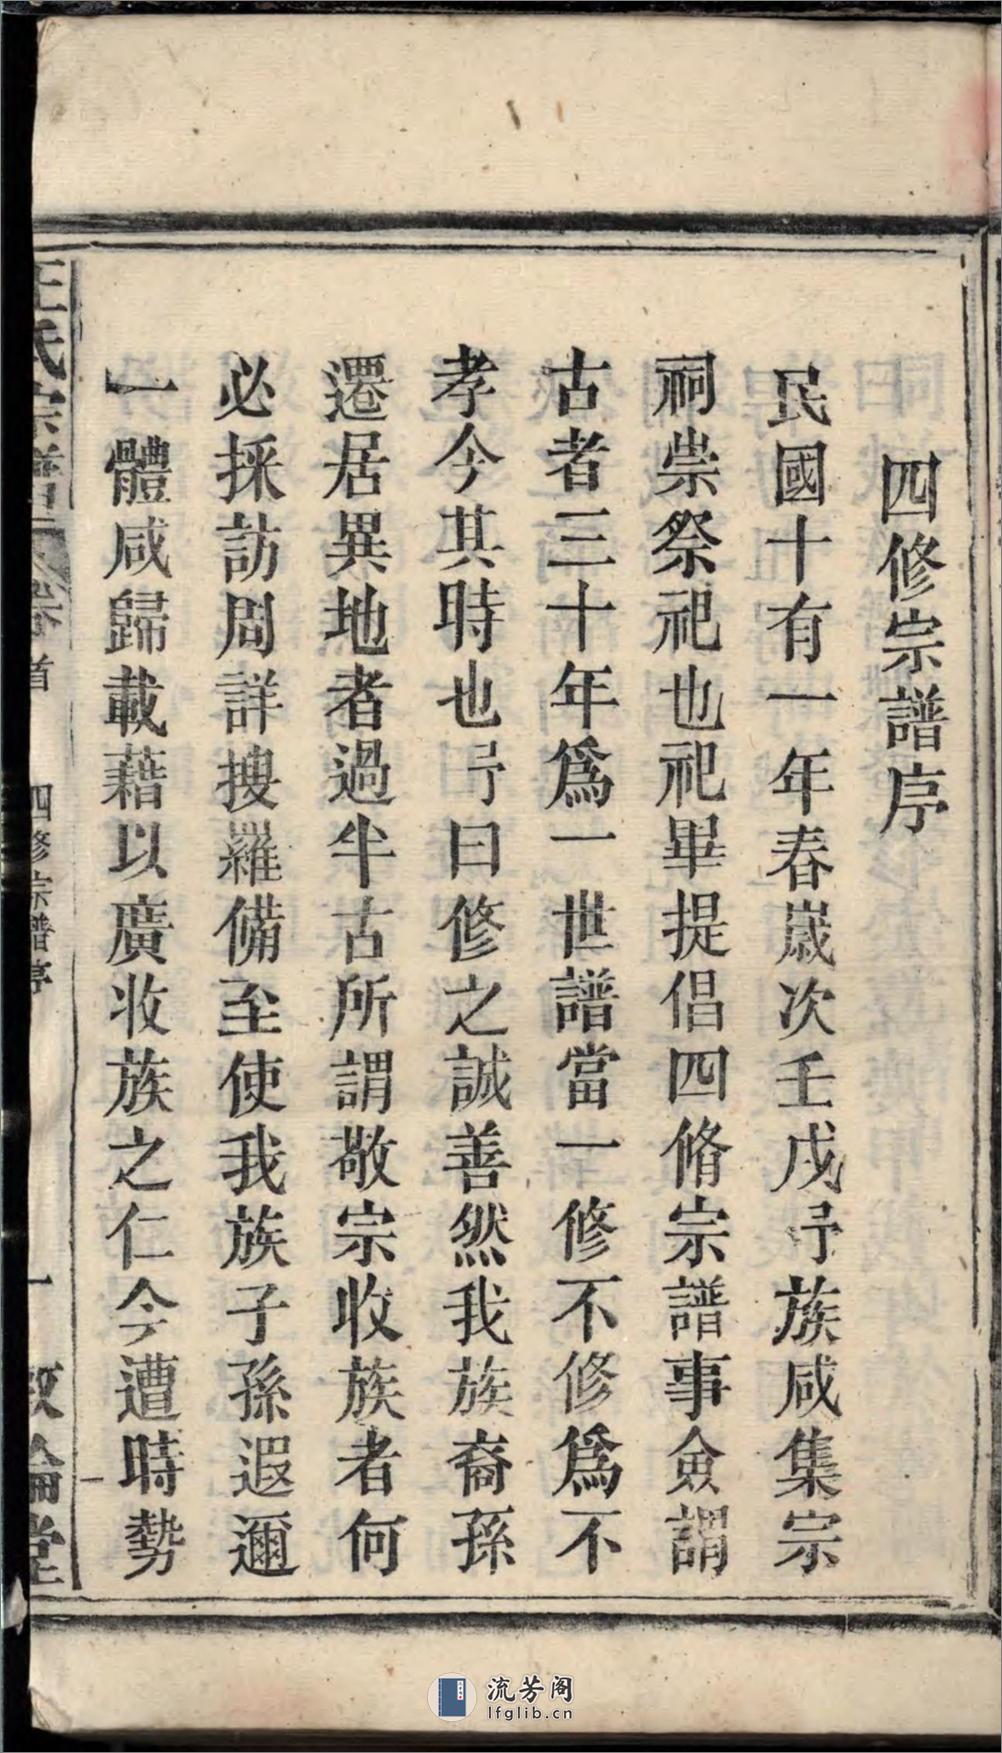 四修宗譜序
民國十有一年春嵗次壬戌予族咸集宗
祠崇祭祀也祀畢提倡四脩宗譜譜事僉謂
古者三十年爲一世譜當一修不修爲不
孝今其時也予曰修之誠善然我族裔孫
遷居異地者過半古所謂敬宗收族者何
必採訪周詳搜羅備至使我族子孫遐邇
一體咸歸載藉以廣收族之仁今遭時勢
王氏宗譜 卷首 四修宗譜序 一 敦倫堂
流芳阁
lfglib.cn